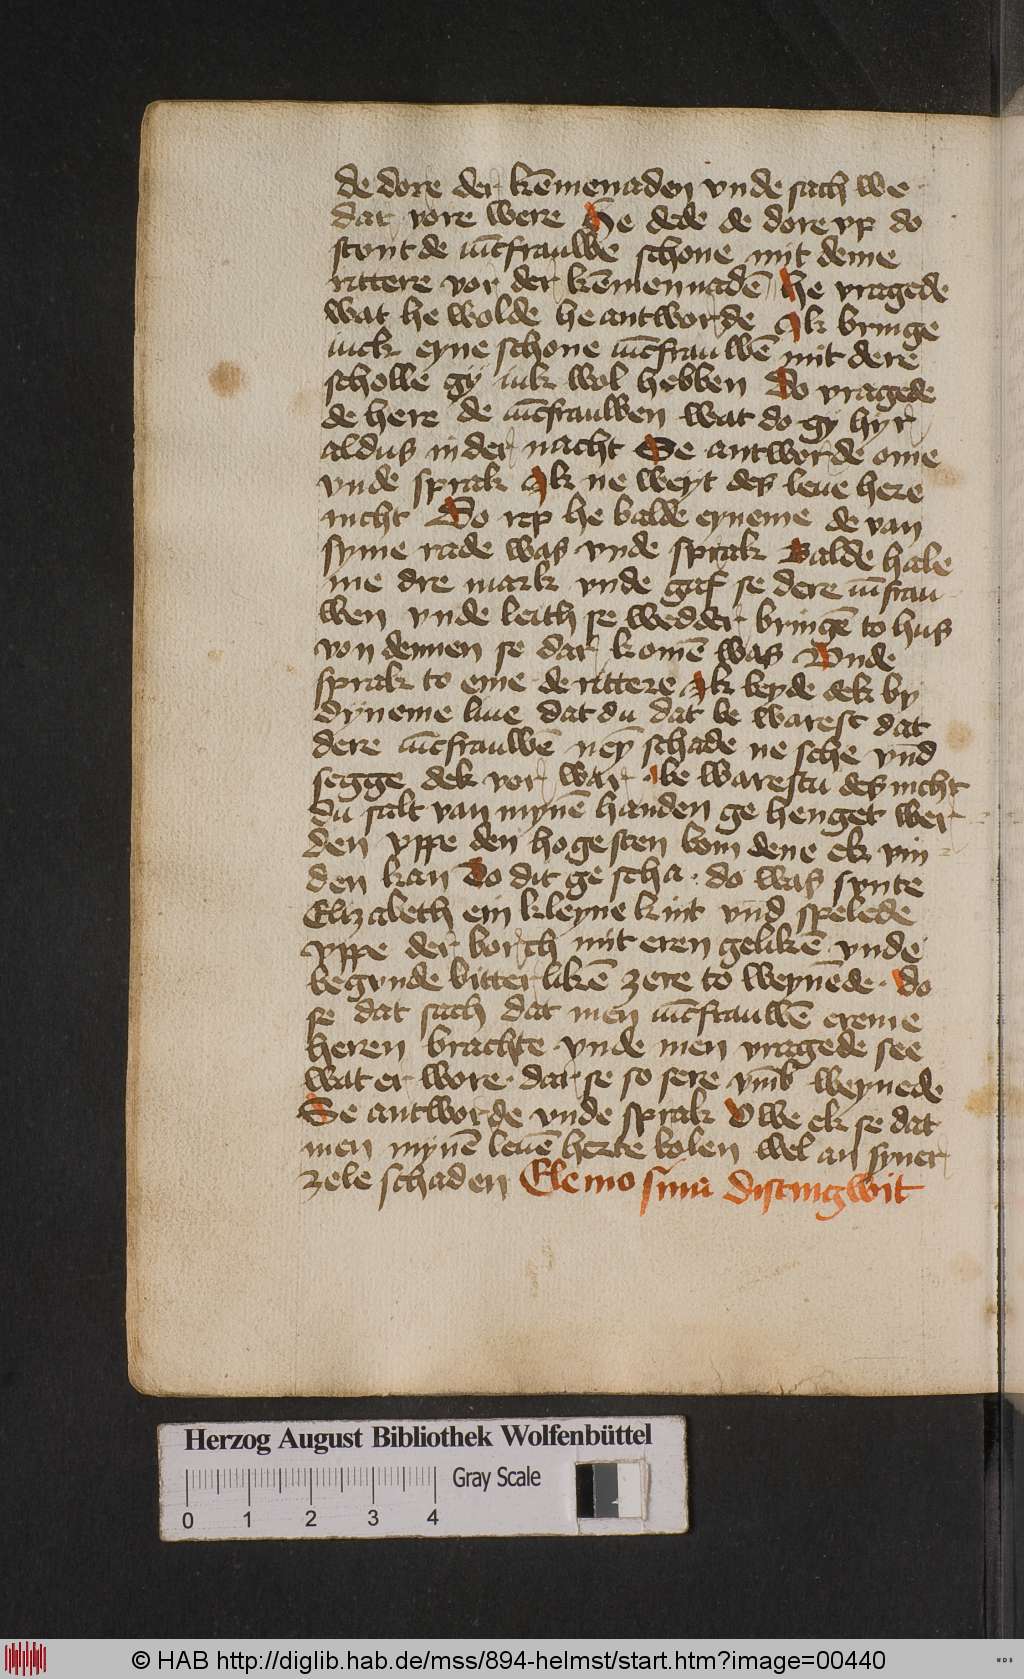 de dore der kēmenaden vnde sach we
dar vore were He dede de dore vp do
stont de iūcfrauwe schone mit deme
rittere vor der kēmennadē he vragede
wat he wolde he antworde Ik bringe
iuck eyne schone iūcfrauwē mit dere
scholle gy iuk wol hebben Do vragede
de here de iūcfrauwen wat do gy hyr
aldus in der nacht Se antworde ome
vnde sprak Ik ne weyt des leue here
nicht Do rep he balde eyneme de van
syme rade was vnde sprak Balde hale
me dre mark vnde gaf se dere iūfrau
wen vnde leith se wedder bringē to hus
von dennen se dar komē was Vnde
sprak to eme de rittere Ik beyde dek by
dyneme liue dat du dat be warest dat
dere iūcfrauwē neȳ schade ne sche vnd
segge dek vor war be warestu des nicht
du salt van mynē handen ge henget wer
den vppe den hogesten bom dene ek vin
den kan Do dit ge scha · do was synte
Elizabeth ein kleyne kint vnd spelede
vppe der borch mit eren gelikē vnde
begunde bitterlikē zere to weynēde · do
se dat sach dat men iūcfrauwē ereme
heren brachte vnde men vragede see
wat er wore · dar se so sere vmb weynede
Se antworde vnde sprak O we ek se dat
men mynē leuē herte bolen wel an syner
zele schaden Elemosina distingwit
Herzog August Bibliothek Wolfenbüttel
Gray Scale
0 1 2 3 4
© HAB http://diglib.hab.de/mss/894-helmst/start.htm?image=00440